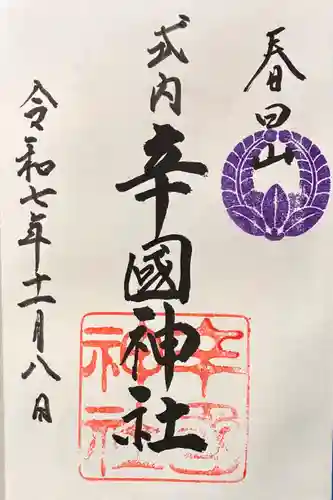 春日山
式内
辛國神社
令和七年十一月八日